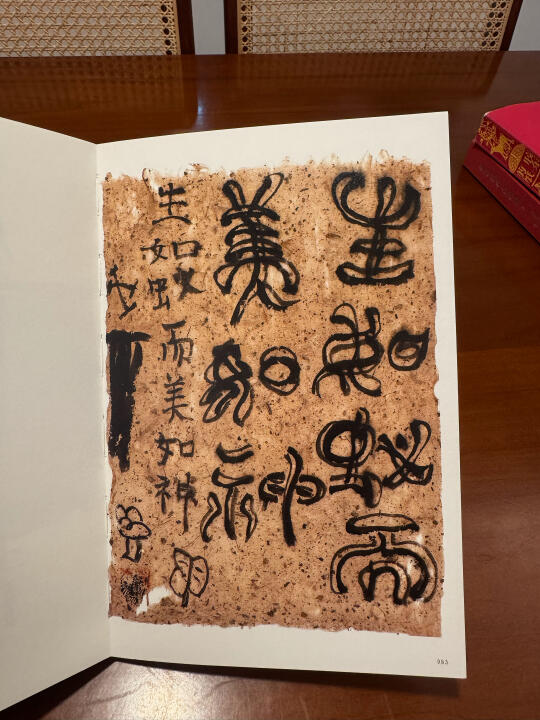 生如蚁而
美如神
生如蚁而美如神
083